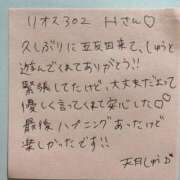 リオス302 Hさん♡
久しぶりに五反田来て、しゅうと
遊んでくれてありがとう!!
緊張してたけど、大丈夫だよって
優しく言ってくれて安心した♡
最後ハプニングあったけど
楽しかったです!!
天月しゅう